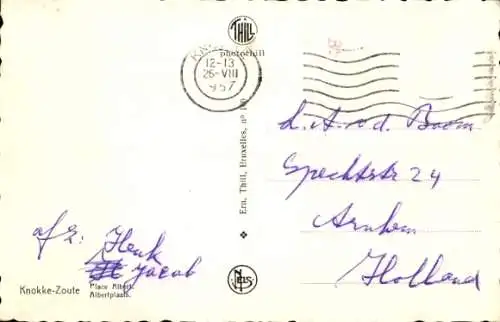 THILL
photothill
12-13
26-VIII
957
L. A. v. d. Boom
Spechtstr 24
Arnhem
Holland
Ern. Thill, Bruxelles, n°
afz. Henk
Jacob
Knokke-Zoute
Place Albert.
Albertplaats.
NELS